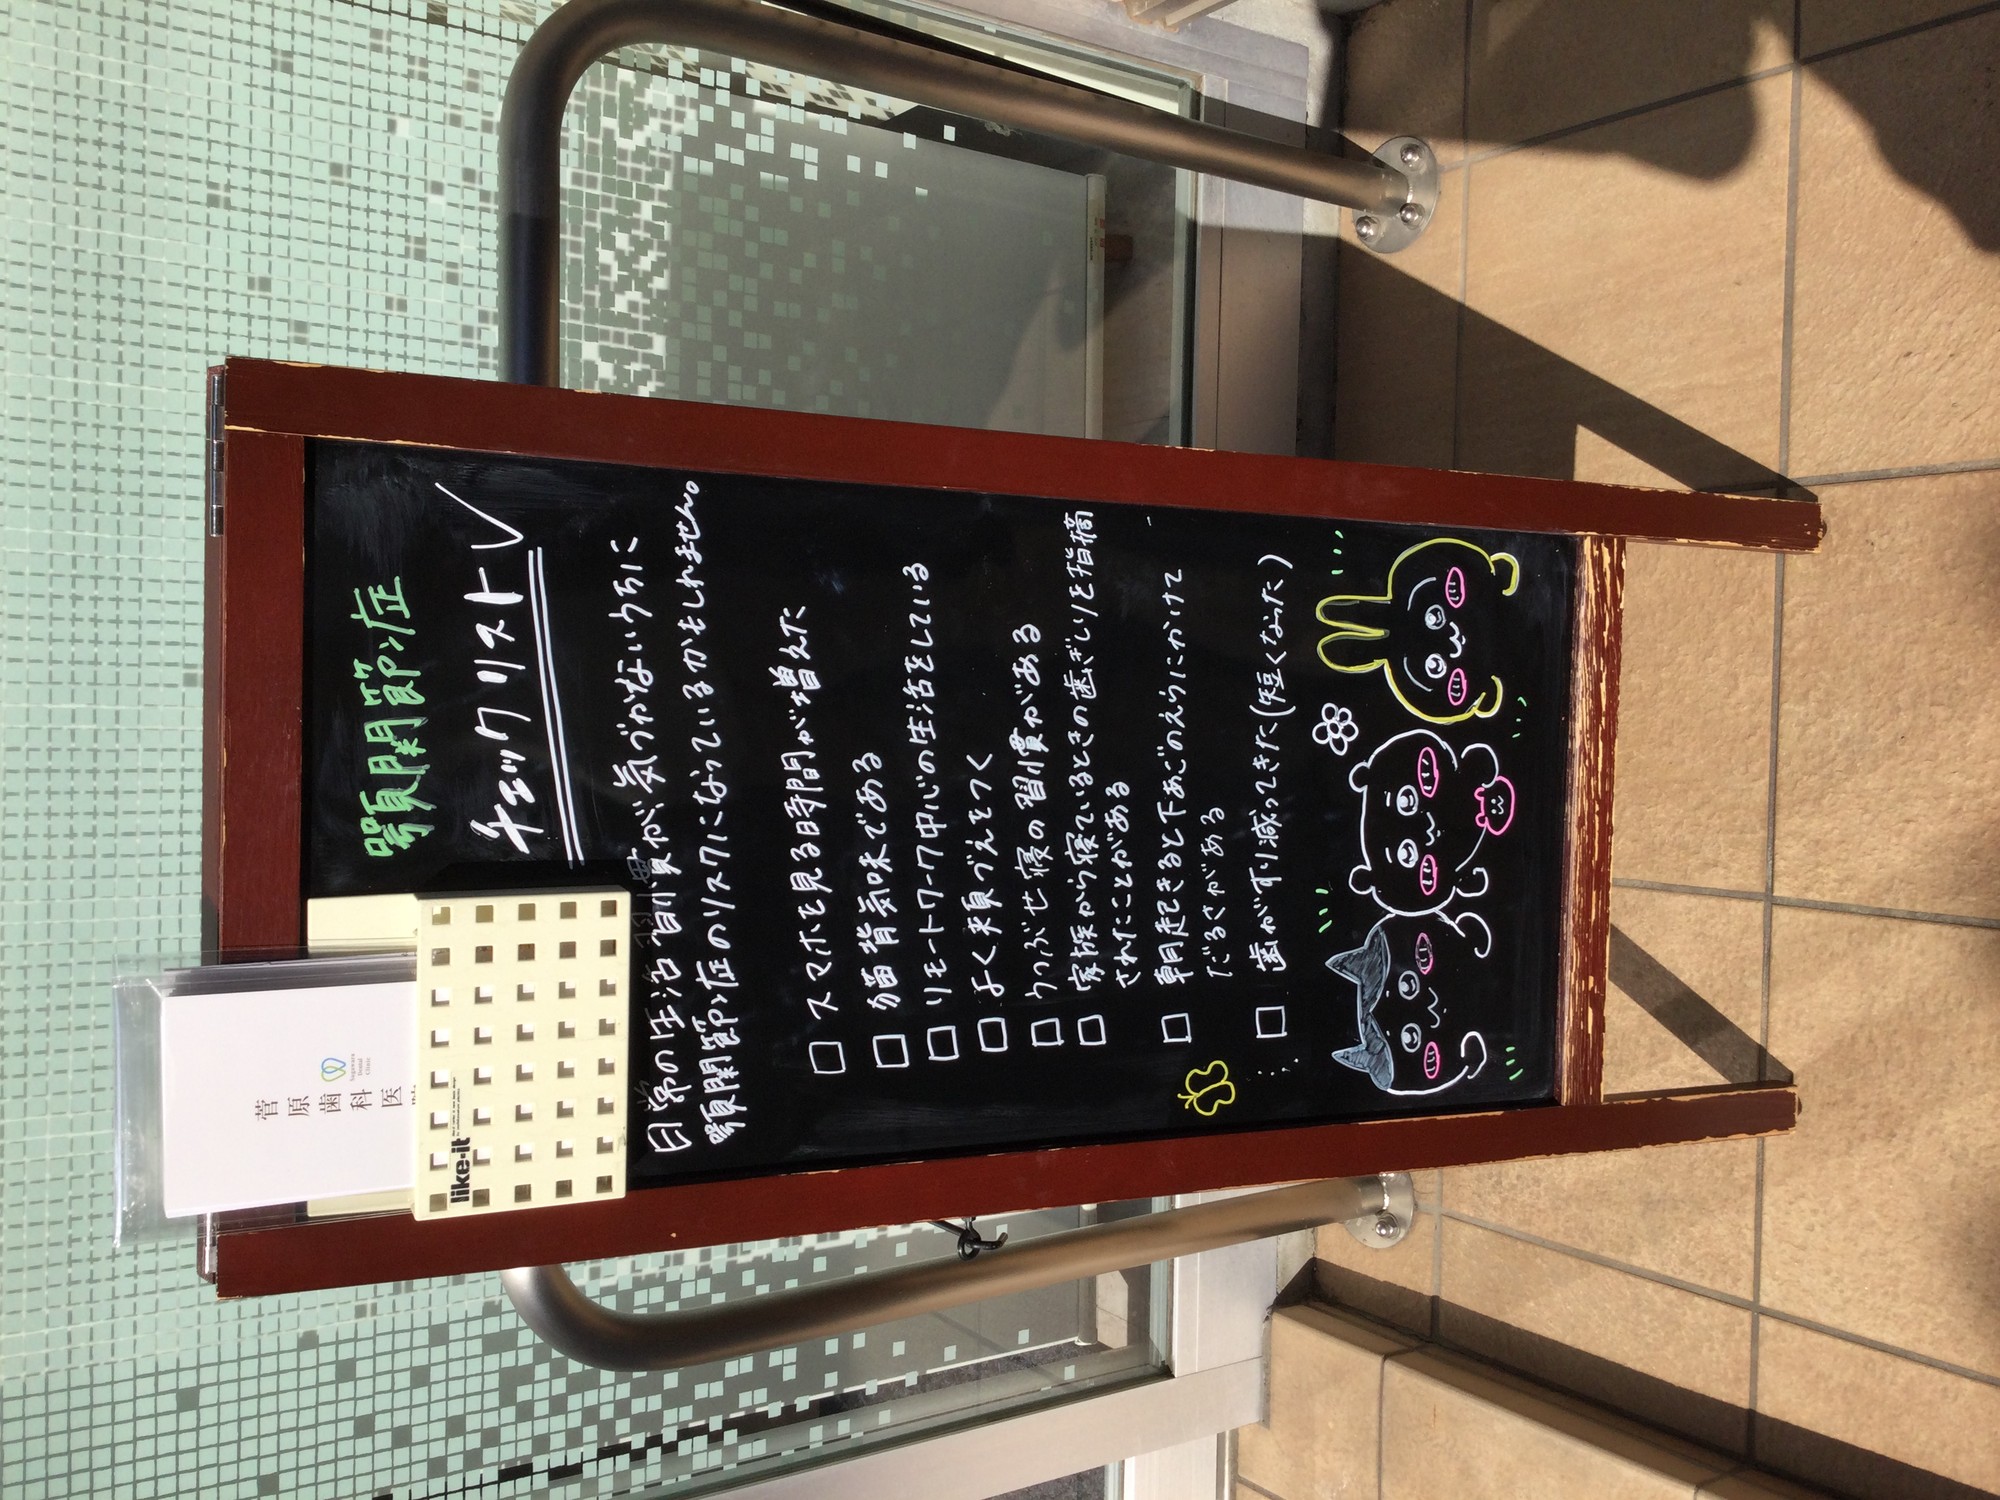 顎関節症
チェックリスト✓
日常の生活習慣が、気づかないうちに
顎関節症のリスクになっているかもしれません。
□ スマホを見る時間が増えた
□ 猫背気味である
□ リモートワーク中心の生活をしている
□ よく頬づえをつく
□ うつぶせ寝の習慣がある
□ 家族から寝ているときの歯ぎしりを指摘
されたことがある
□ 朝起きると下あごのえらにかけて
だるさがある
□ 歯がすり減ってきた(短くなった)
菅原歯科医院
Sugawara
Dental
Clinic
like-it